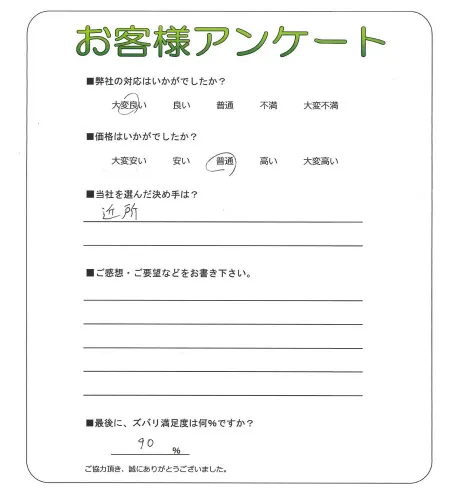 お客様アンケート
■弊社の対応はいかがでしたか？
大変良い 良い 普通 不満 大変不満
■価格はいかがでしたか？
大変安い 安い 普通 高い 大変高い
■当社を選んだ決め手は？
近所
■ご感想・ご要望などをお書き下さい。
■最後に、ズバリ満足度は何%ですか？
90 %
ご協力頂き、誠にありがとうございました。